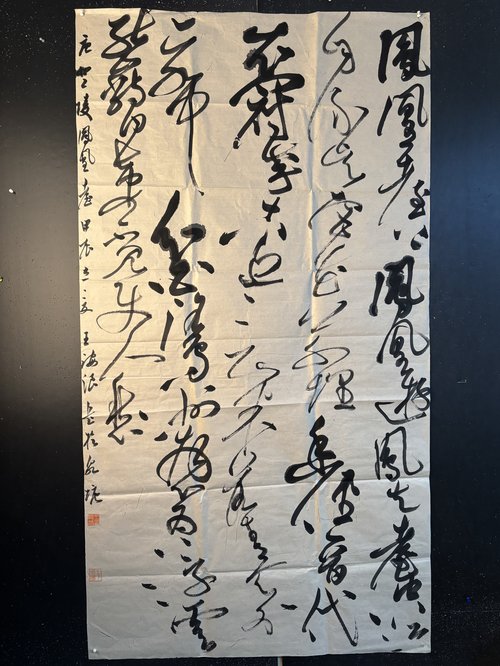 鳳凰臺上鳳凰遊鳳去臺空江
自流吳宮花草埋幽徑晉代
衣冠成古丘三山半落青天外
二水中分白鷺洲總為浮雲
能蔽日長安不見使人愁
登金陵鳳凰臺甲辰之夏王海浪書於